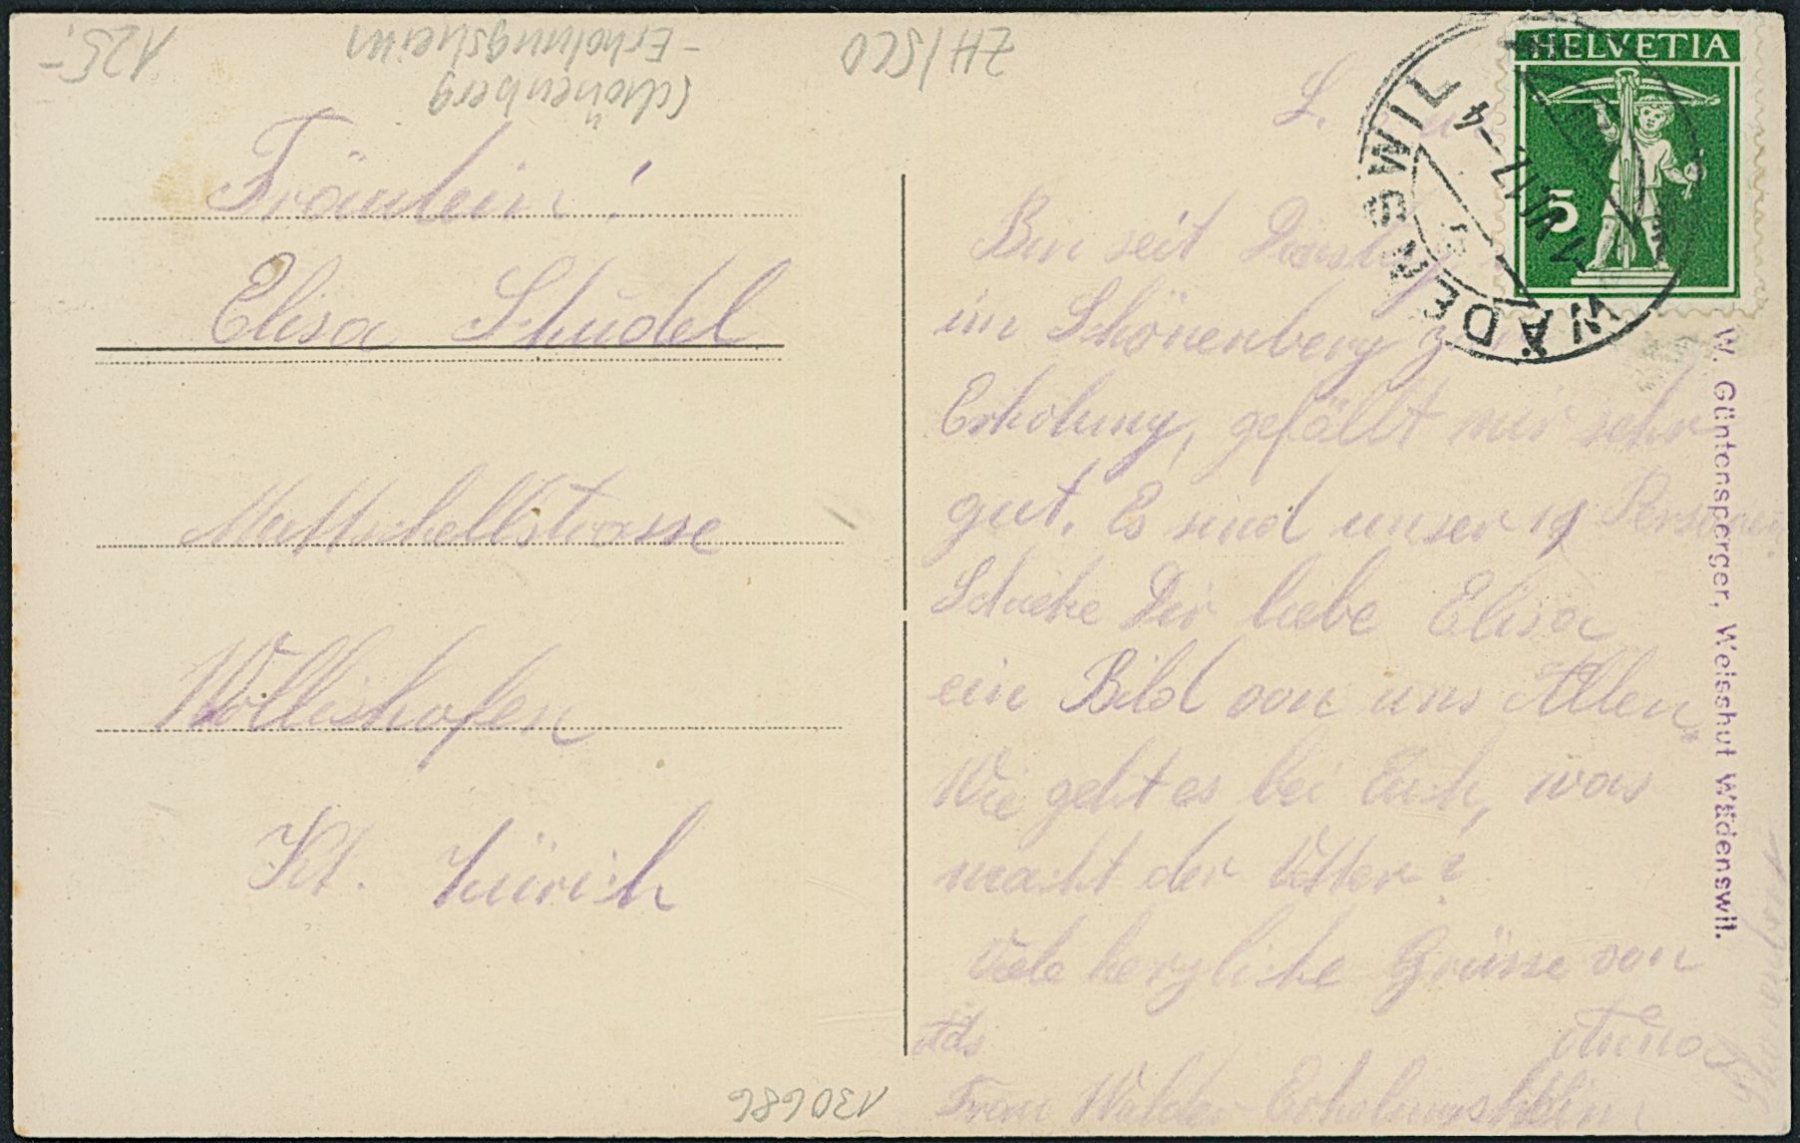 125.-
Schönenberg
-Erholungsheim
ZH/SCO
Fräulein!
Elisa Studel
Mutschellstrasse
Wollishofen
Kt. Zürich
130686
HELVETIA
5
WÄDENSWIL
L.
Bin seit Dienstag
im Schönenberg zur
Erholung, gefällt mir sehr
gut. Es sind unser 19 Personen.
Schicke Dir liebe Elisa
ein Bild von uns Allen.
Wie geht es bei Euch, was
macht der Vater?
Viele herzliche Grüsse von
Anna
Ads
Frau Walder Erholungsheim
Schönenberg
W. Güntensperger, Weisshut Wädenswil.